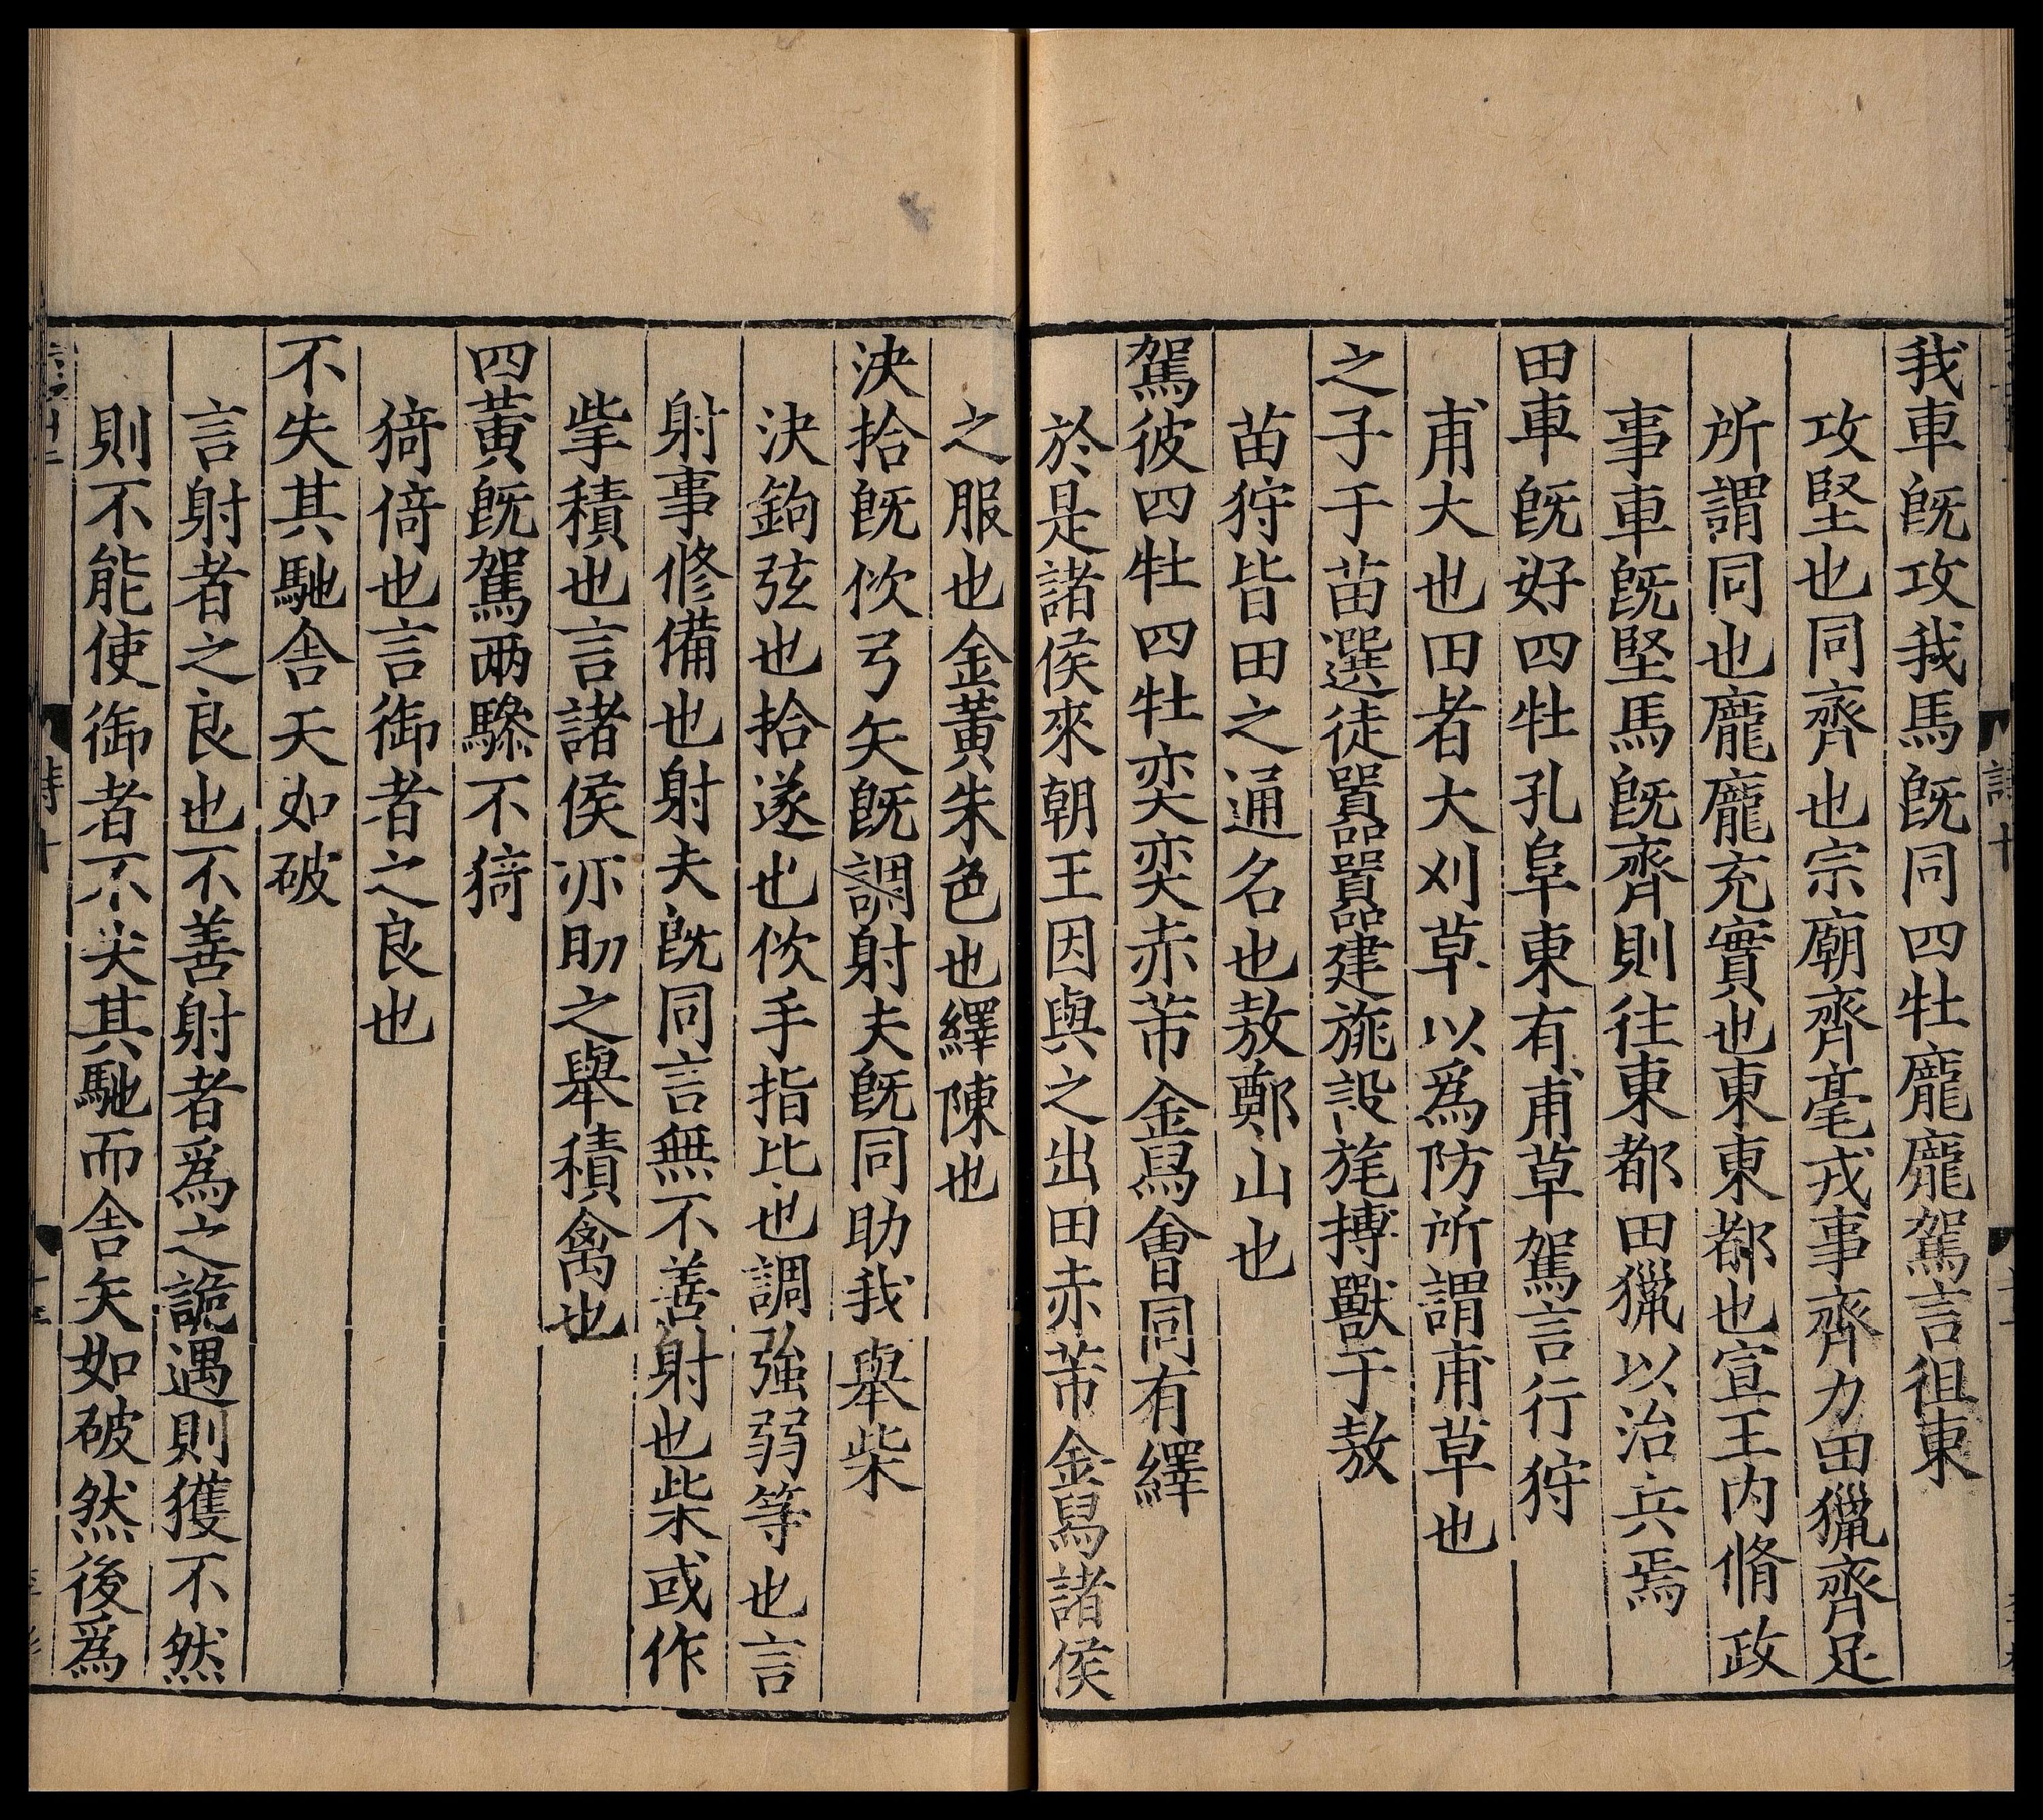 我車旣攻我馬旣同四牡龐龐駕言徂東
攻堅也同齊也宗廟齊毫戎事齊力田獵齊足
所謂同也龐龐充實也東東都也宣王内脩政
事車旣堅馬旣齊則往東都田獵以治兵焉
田車旣好四牡孔阜東有甫草駕言行狩
甫大也田者大刈草以爲防所謂甫草也
之子于苗選徒囂囂建旐設旄搏獸于敖
苗狩皆田之通名也敖鄭山也
駕彼四牡四牡奕奕赤芾金舄會同有繹
於是諸侯來朝王因與之出田赤芾金舄諸侯
之服也金黃朱色也繹陳也
決拾旣佽弓矢旣調射夫旣同助我舉柴
決鉤弦也拾遂也佽手指比也調強弱等也言
射事修備也射夫旣同言無不善射也柴或作
㧘積也言諸侯亦助之舉積禽也
四黃旣駕兩驂不猗
猗倚也言御者之良也
不失其馳舍天如破
言射者之良也不善射者爲之詭遇則獲不然
則不能使御者不失其馳而舍矢如破然後爲
詩十